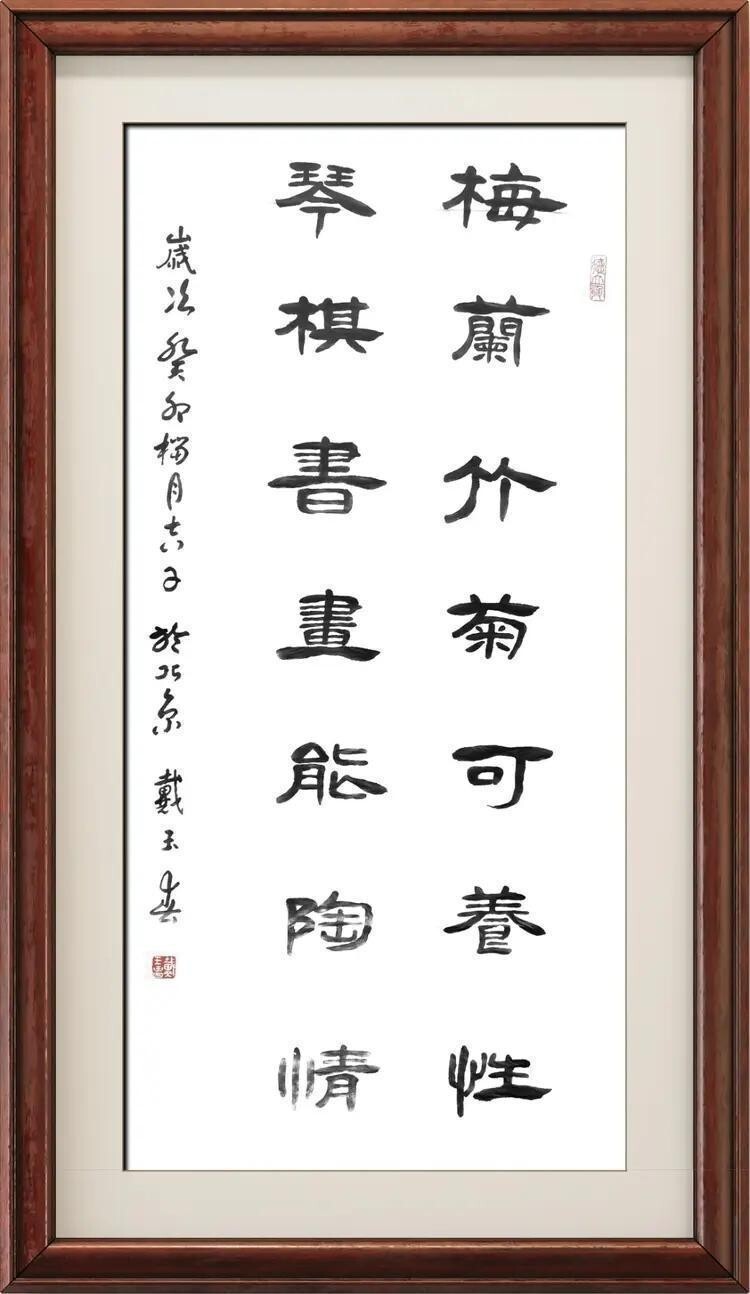 梅蘭竹菊可養性
琴棋書畫能陶情
歲次癸卯榴月吉日於北京戴玉